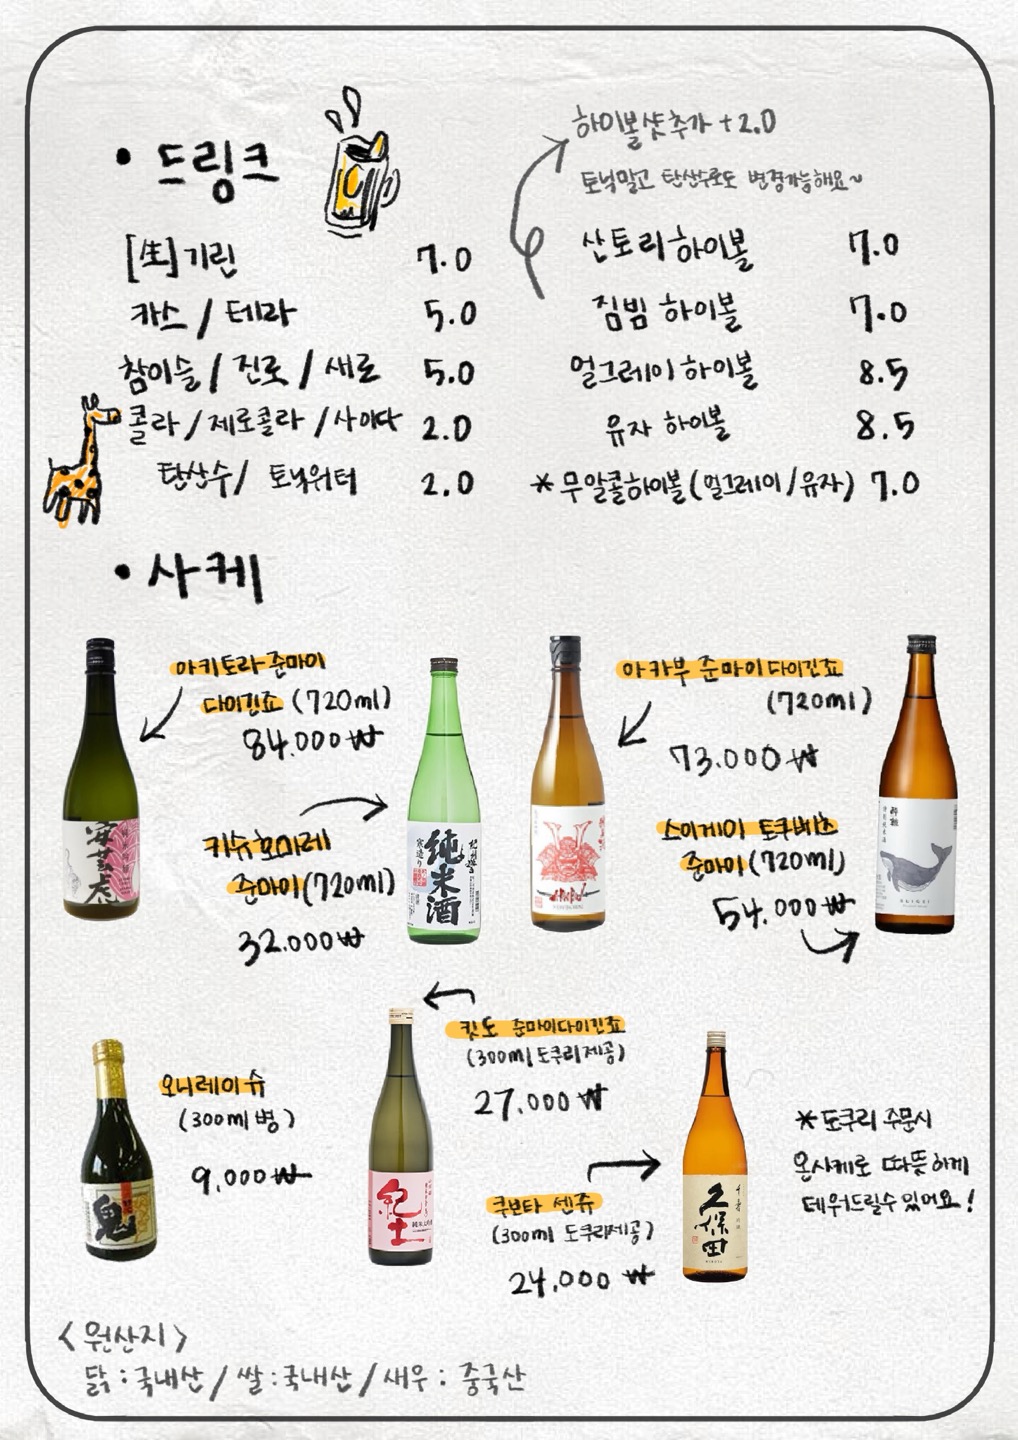 • 드링크
[生] 기린 7.0
카스 / 테라 5.0
참이슬 / 진로 / 새로 5.0
콜라 / 제로콜라 / 사이다 2.0
탄산수 / 토닉워터 2.0
하이볼 샷 추가 +2.0
토닉말고 탄산수로도 변경가능해요~
산토리 하이볼 7.0
짐빔 하이볼 7.0
얼그레이 하이볼 8.5
유자 하이볼 8.5
* 무알콜하이볼 (얼그레이 / 유자) 7.0
• 사케
아키토라 준마이
다이긴죠 (720ml)
84.000₩
카슈호마레
준마이 (720ml)
32.000₩
아카부 준마이 다이긴죠
(720ml)
73.000₩
스이게이 토쿠베츠
준마이 (720ml)
54.000₩
오니레이슈
(300ml 병)
9,000₩
킷도 준마이다이긴죠
(300ml 도쿠리제공)
27,000₩
쿠보타 센쥬
(300ml 도쿠리제공)
24,000₩
* 도쿠리 주문시
온사케로 따뜻하게
데워드릴수 있어요!
安芸虎
純米酒
寒造り
AKABU
酔鯨
特別純米酒
SUIGEI
鬼
紀土
久保田
千寿
<원산지>
닭 : 국내산 / 쌀 : 국내산 / 새우 : 중국산